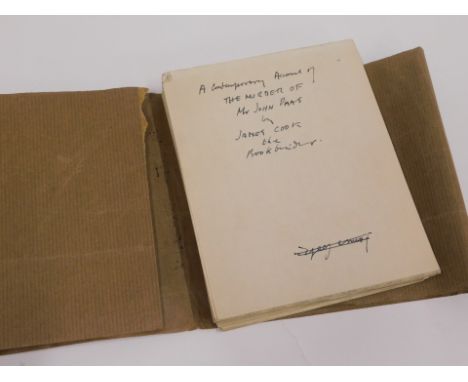 A Contemporary Account of
THE MURDER OF
Mr JOHN PAAS
by
JAMES COOK
the
Bookbinder.